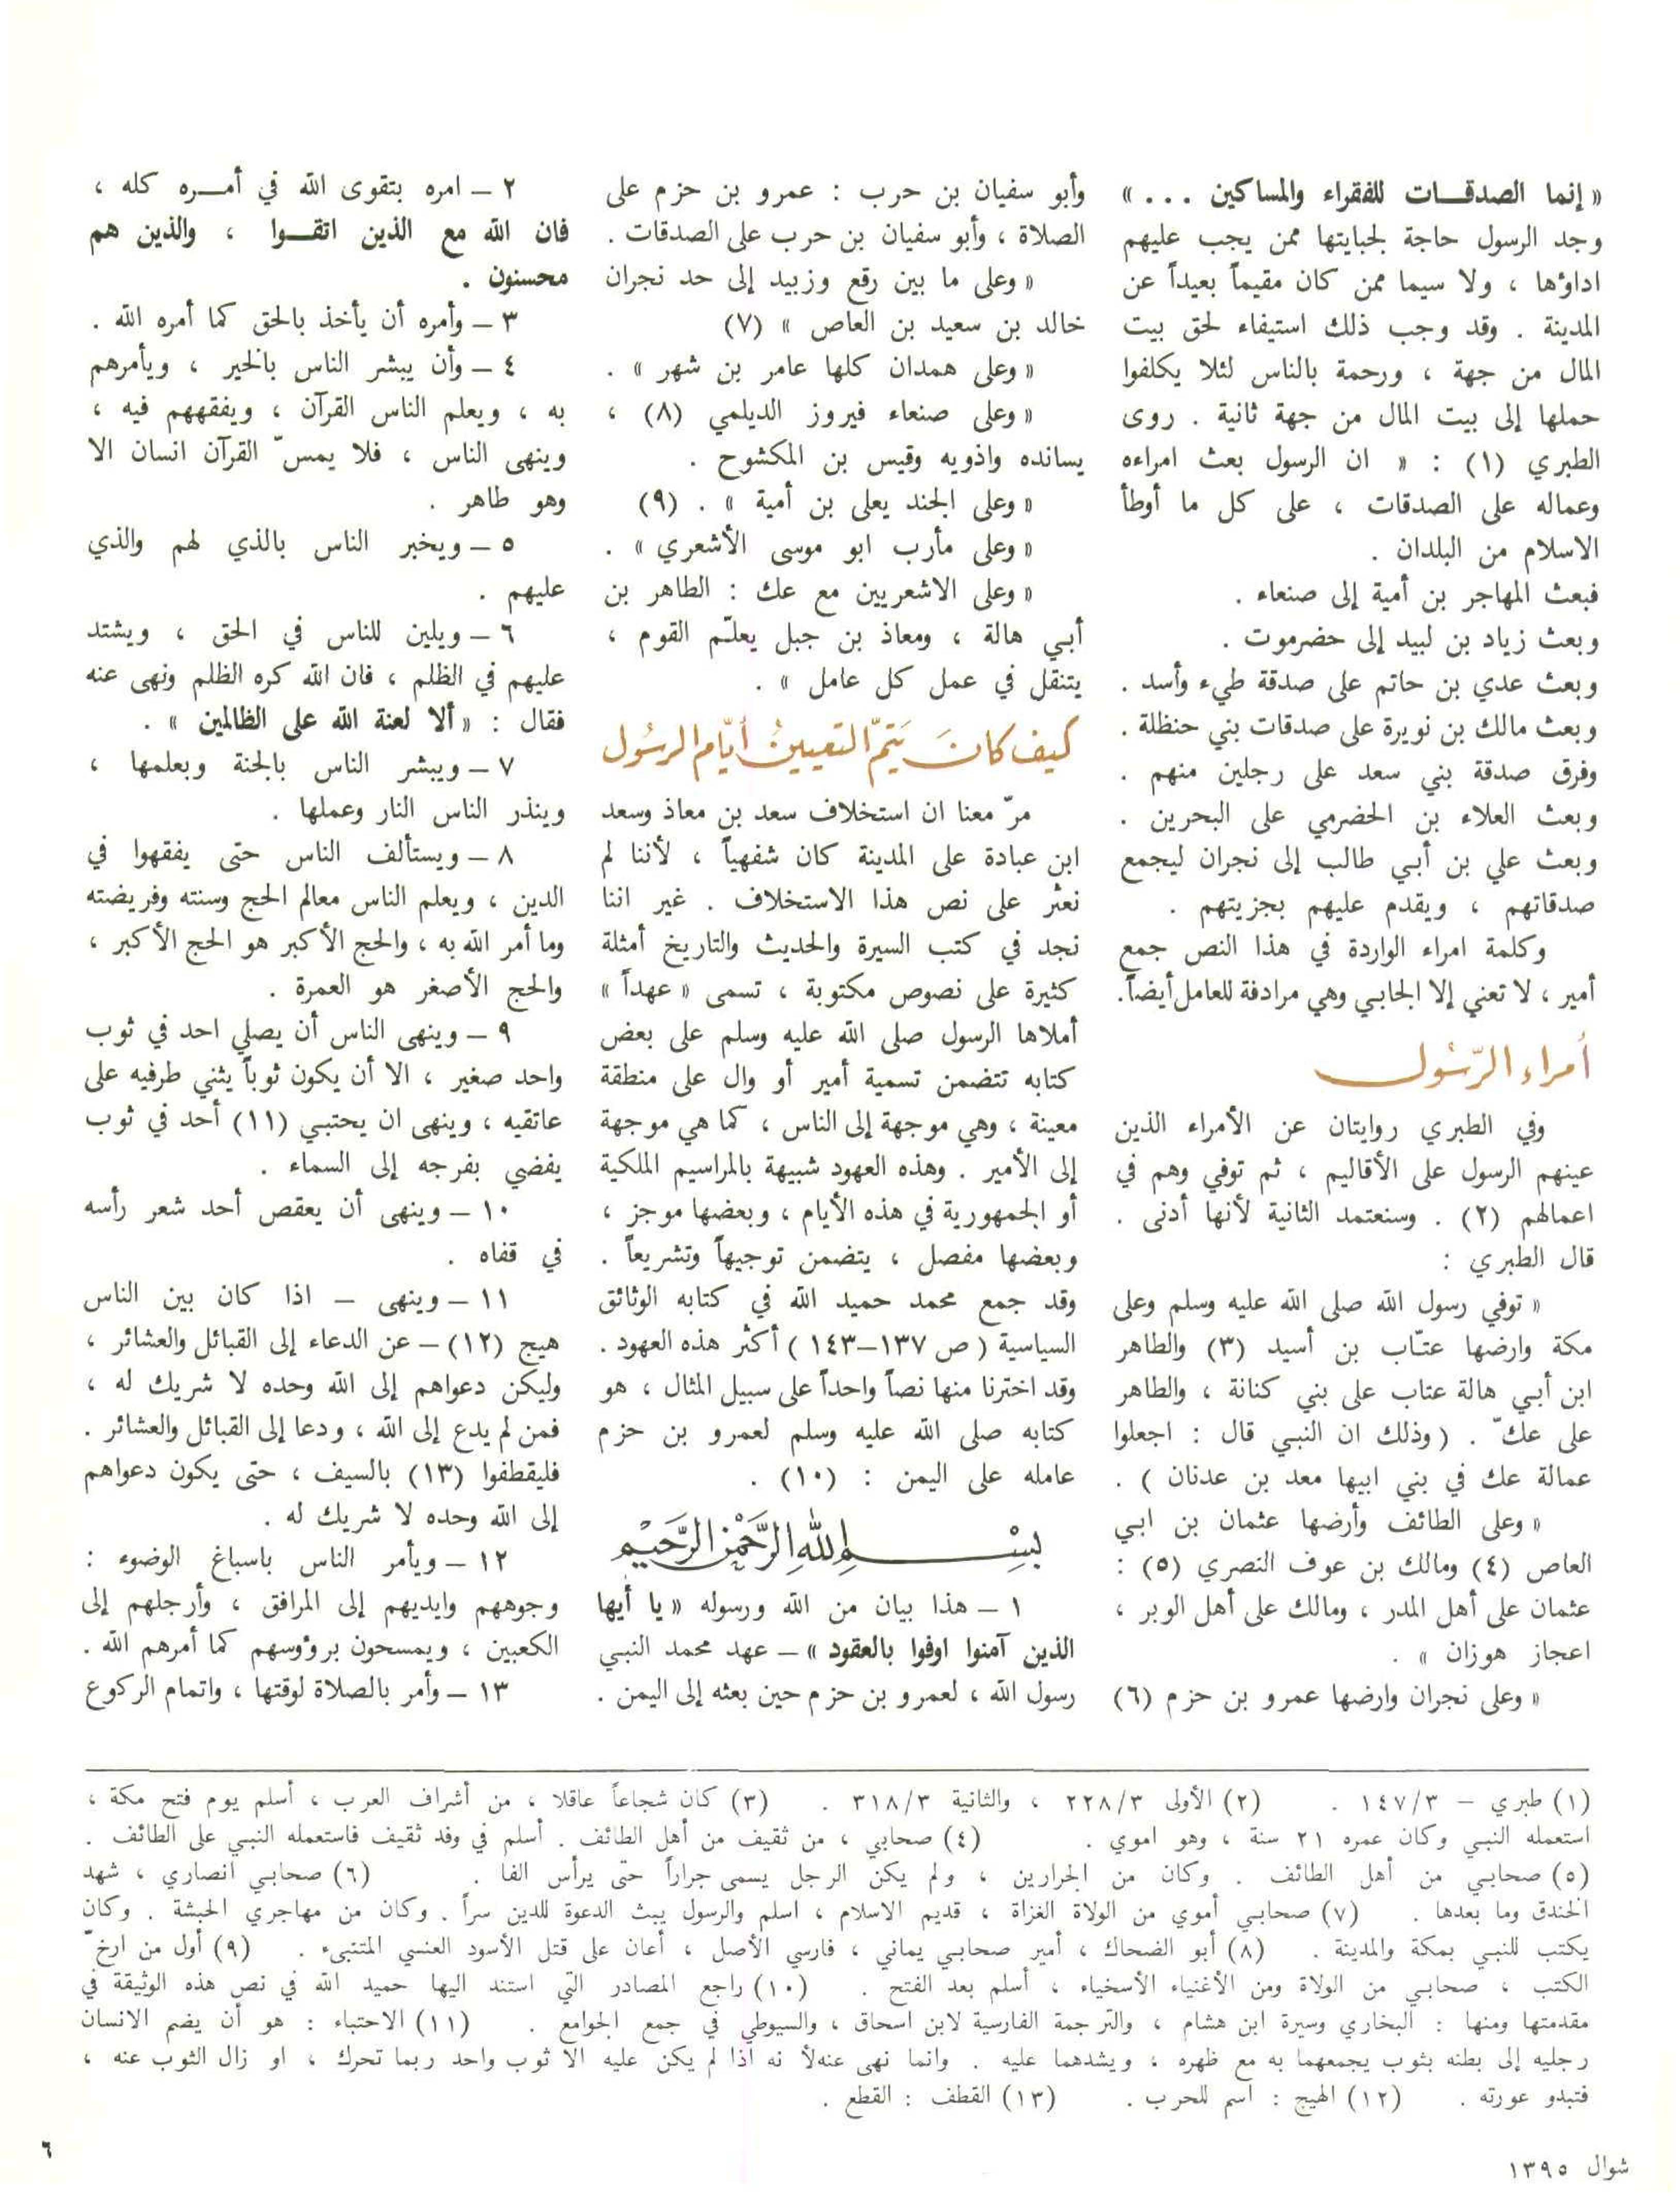 « إنما الصدقــات للفقراء والمساكين ... »
وجد الرسول حاجة لجبايتها ممن يجب عليهم
اداؤها ، ولا سيما ممن كان مقيماً بعيداً عن
المدينة . وقد وجب ذلك استيفاء لحق بيت
المال من جهة ، ورحمة بالناس لئلا يكلفوا
حملها إلى بيت المال من جهة ثانية . روى
الطبري (١) : « ان الرسول بعث امراءه
وعماله على الصدقات ، على كل ما أوطأ
الاسلام من البلدان .
فبعث المهاجر بن أمية إلى صنعاء .
وبعث زياد بن لبيد إلى حضرموت .
وبعث عدي بن حاتم على صدقة طيء وأسد .
وبعث مالك بن نويرة على صدقات بني حنظلة .
وفرق صدقة بني سعد على رجلين منهم .
وبعث العلاء بن الحضرمي على البحرين .
وبعث علي بن أبي طالب إلى نجران ليجمع
صدقاتهم ، ويقدم عليهم بجزيتهم .
وكلمة امراء الواردة في هذا النص جمع
أمير ، لا تعني إلا الجابي وهي مرادفة للعامل أيضاً.
أمراء الرّسُول
وفي الطبري روايتان عن الأمراء الذين
عينهم الرسول على الأقاليم ، ثم توفي وهم في
اعمالهم (٢) . وسنعتمد الثانية لأنها أدنى .
قال الطبري :
« توفي رسول الله صلى الله عليه وسلم وعلى
مكة وارضها عتّاب بن أسيد (٣) والطاهر
ابن أبي هالة عتاب على بني كنانة ، والطاهر
على عكّ . (وذلك ان النبي قال : اجعلوا
عمالة عك في بني ابيها معد بن عدنان ) .
« وعلى الطائف وأرضها عثمان بن ابي
العاص (٤) ومالك بن عوف النصري (٥) :
عثمان على أهل المدر ، ومالك على أهل الوبر ،
اعجاز هوزان » .
« وعلى نجران وارضها عمرو بن حزم (٦)
وأبو سفيان بن حرب : عمرو بن حزم على
الصلاة ، وأبو سفيان بن حرب على الصدقات .
« وعلى ما بين رقع وزبيد إلى حد نجران
خالد بن سعيد بن العاص » (٧)
« وعلى همدان كلها عامر بن شهر » .
« وعلى صنعاء فيروز الديلمي (٨) ،
يسانده واذويه وقيس بن المكشوح .
« وعلى الجند يعلى بن أمية » . (٩)
« وعلى مأرب ابو موسى الأشعري » .
« وعلى الاشعريين مع عك : الطاهر بن
أبي هالة ، ومعاذ بن جبل يعلّم القوم ،
يتنقل في عمل كل عامل » .
كيف كانَ يَتمّ التعيينُ أيّام الرسُول
مرّ معنا ان استخلاف سعد بن معاذ وسعد
ابن عبادة على المدينة كان شفهياً ، لأننا لم
نعثر على نص هذا الاستخلاف . غير اننا
نجد في كتب السيرة والحديث والتاريخ أمثلة
كثيرة على نصوص مكتوبة ، تسمى « عهداً »
أملاها الرسول صلى الله عليه وسلم على بعض
كتابه تتضمن تسمية أمير أو وال على منطقة
معينة ، وهي موجهة إلى الناس ، كما هي موجهة
إلى الأمير . وهذه العهود شبيهة بالمراسيم الملكية
أو الجمهورية في هذه الأيام ، وبعضها موجز ،
وبعضها مفصل ، يتضمن توجيهاً وتشريعاً .
وقد جمع محمد حميد الله في كتابه الوثائق
السياسية ( ص ١٣٧–١٤٣ ) أكثر هذه العهود .
وقد اخترنا منها نصاً واحداً على سبيل المثال ، هو
كتابه صلى الله عليه وسلم لعمرو بن حزم
عامله على اليمن : (١٠) .
بِسْمِ اللهِ الرَّحْمٰنِ الرَّحَيْمِ
١ – هذا بيان من الله ورسوله « يا أيها
الذين آمنوا اوفوا بالعقود » – عهد محمد النبي
رسول الله ، لعمرو بن حزم حين بعثه إلى اليمن .
٢ – امره بتقوى الله في أمــره كله ،
فان الله مع الذين اتقــوا ، والذين هم
محسنون .
٣ – وأمره أن يأخذ بالحق كما أمره الله .
٤ – وأن يبشر الناس بالخير ، ويأمرهم
به ، ويعلم الناس القرآن ، ويفقههم فيه ،
وينهى الناس ، فلا يمسّ القرآن انسان الا
وهو طاهر .
٥ – ويخبر الناس بالذي لهم والذي
عليهم .
٦ – ويلين للناس في الحق ، ويشتد
عليهم في الظلم ، فان الله كره الظلم ونهى عنه
فقال : « ألا لعنة الله على الظالمين » .
٧ – ويبشر الناس بالجنة وبعلمها ،
وينذر الناس النار وعملها .
٨ – ويستألف الناس حتى يفقهوا في
الدين ، ويعلم الناس معالم الحج وسنته وفريضته
وما أمر الله به ، والحج الأكبر هو الحج الأكبر ،
والحج الأصغر هو العمرة .
٩ – وينهى الناس أن يصلي احد في ثوب
واحد صغير ، الا أن يكون ثوباً يثني طرفيه على
عاتقيه ، وينهى ان يحتبي (١١) أحد في ثوب
يفضي بفرجه إلى السماء .
١٠ – وينهى أن يعقص أحد شعر رأسه
في قفاه .
١١ – وينهى – اذا كان بين الناس
هيج (١٢) – عن الدعاء إلى القبائل والعشائر ،
وليكن دعواهم إلى الله وحده لا شريك له ،
فمن لم يدع إلى الله ، ودعا إلى القبائل والعشائر .
فليقطفوا (١٣) بالسيف ، حتى يكون دعواهم
إلى الله وحده لا شريك له .
١٢ – ويأمر الناس باسباغ الوضوء :
وجوههم وايديهم إلى المرافق ، وأرجلهم إلى
الكعبين ، ويمسحون بروؤسهم كما أمرهم الله .
١٣ – وأمر بالصلاة لوقتها ، واتمام الركوع
(١) طبري – ١٤٧/٣ . (٢) الأولى ٢٢٨/٣ ، والثانية ٣١٨/٣ . (٣) كان شجاعاً عاقلا ، من أشراف العرب ، أسلم يوم فتح مكة ،
استعمله النبي وكان عمره ٢١ سنة ، وهو اموي . (٤) صحابي ، من ثقيف من أهل الطائف . أسلم في وفد ثقيف فاستعمله النبي على الطائف .
(٥) صحابي من أهل الطائف . وكان من الجرارين ، ولم يكن الرجل يسمى جراراً حتى يرأس الفا . (٦) صحابي انصاري ، شهد
الخندق وما بعدها . (٧) صحابي أموي من الولاة الغزاة ، قديم الاسلام ، اسلم والرسول يبث الدعوة للدين سراً . وكان من مهاجري الحبشة . وكان
يكتب للنبي بمكة والمدينة . (٨) أبو الضحاك ، أمير صحابي يماني ، فارسي الأصل ، أعان على قتل الأسود العنسي المتنبىء . (٩) أول من ارخّ
الكتب ، صحابي من الولاة ومن الأغنياء الأسخياء ، أسلم بعد الفتح . (١٠) راجع المصادر التي استند اليها حميد الله في نص هذه الوثيقة في
مقدمتها ومنها : البخاري وسيرة ابن هشام ، والترجمة الفارسية لابن اسحاق ، والسيوطي في جمع الجوامع . (١١) الاحتباء : هو أن يضم الانسان
رجليه إلى بطنه بثوب يجمعهما به مع ظهره ، ويشدهما عليه . وانما نهى عنه لأ نه اذا لم يكن عليه الا ثوب واحد ربما تحرك ، او زال الثوب عنه ،
فتبدو عورته . (١٢) الهيج : اسم للحرب . (١٣) القطف : القطع .
شوال ١٣٩٥
٦